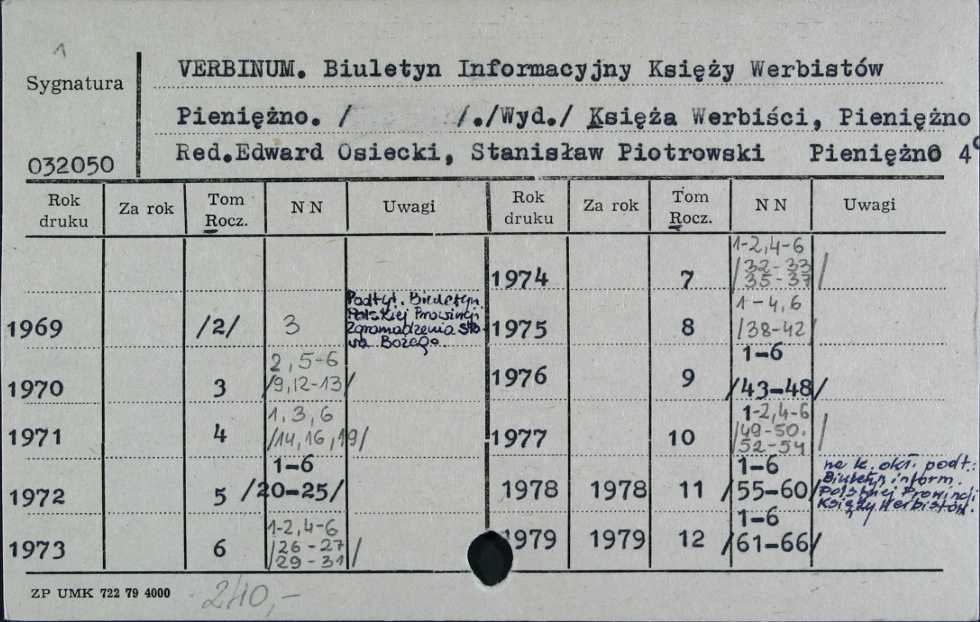 1
Sygnatura
032050
VERBINUM. Biuletyn Informacyjny Księży Werbistów
Pieniężno. / /./Wyd./ Księża Werbiści, Pieniężno
Red.Edward Osiecki, Stanisław Piotrowski Pieniężno 4°
Rok druku Za rok Tom Rocz. N N Uwagi Rok druku Za rok Tom Rocz. N N Uwagi
1969 /2/ 3 Podtyt. Biuletyn Polskiej Prowincji Zgromadzenia Sło- wa Bożego
1970 3 2, 5-6 /9,12-13/
1971 4 1, 3, 6 /14, 16, 19/
1972 5 1-6 /20-25/
1973 6 1-2, 4-6 /26-27 29-31/
1974 7 1-2, 4-6 /32-33 35-37/
1975 8 1-4, 6 /38-42/
1976 9 1-6 /43-48/
1977 10 1-2, 4-6 /49-50. 52-54/
1978 1978 11 1-6 /55-60/ na k. okł. podt.: Biuletyn inform. Polskiej Prowincji Księży Werbistów.
1979 1979 12 1-6 /61-66/
ZP UMK 722 79 4000
240,-